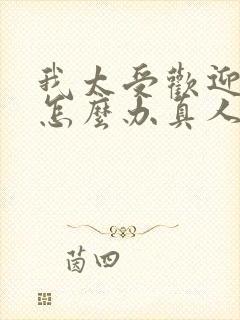 我太受歡迎
怎麼办真人
茵四